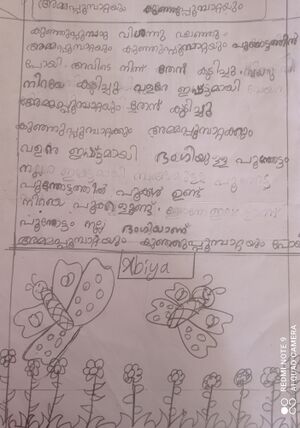 അമ്മപ്പൂമ്പാറ്റയും കുഞ്ഞുപ്പൂമ്പാറ്റയും
കുഞ്ഞുപ്പൂമ്പാറ്റ വിശന്നു വലഞ്ഞു
അമ്മപ്പൂമ്പാറ്റയും കുഞ്ഞുപ്പൂമ്പാറ്റയും പൂന്തോട്ടത്തിൽ
പോയി അവിടെ നിന്ന് തേൻ കുടിച്ചു
നിറയെ കുടിച്ചു വളരെ ഇഷ്ടമായി
അമ്മപ്പൂമ്പാറ്റയും തേൻ കുടിച്ചു
കുഞ്ഞുപ്പൂമ്പാറ്റക്കും അമ്മപ്പൂമ്പാറ്റക്കും
വളരെ ഇഷ്ടമായി ഭംഗിയുള്ള പൂന്തോട്ടം
നല്ല
പൂന്തോട്ടത്തിൽ പൂക്കൾ ഉണ്ട്
നിറയെ പൂക്കളുണ്ട്
പൂന്തോട്ടം നല്ല ഭംഗിയാണ്
അമ്മപ്പൂമ്പാറ്റയും കുഞ്ഞുപ്പൂമ്പാറ്റയും പോയി
Abiya
REDMI NOTE 9
AI QUAD CAMERA